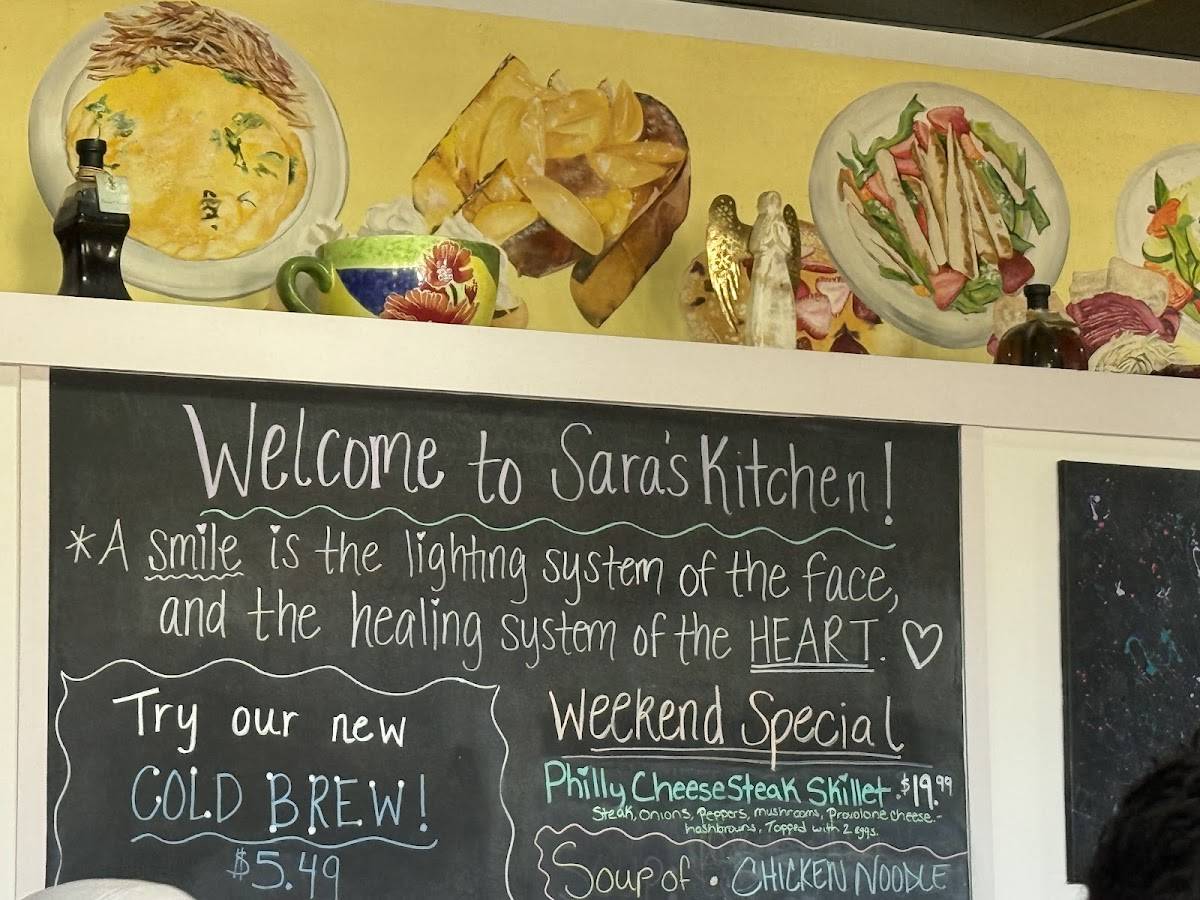 Welcome to Sara's Kitchen!
*A smile is the lighting system of the face,
and the healing system of the HEART. ♡
Try our new
COLD BREW!
$5.49
Weekend Special
Philly CheeseSteak Skillet. $19.99
Steak, Onions, Peppers, mushrooms, Provolone cheese.-
hashbrowns, Topped with 2 eggs.
Soup of • CHICKEN NOODLE